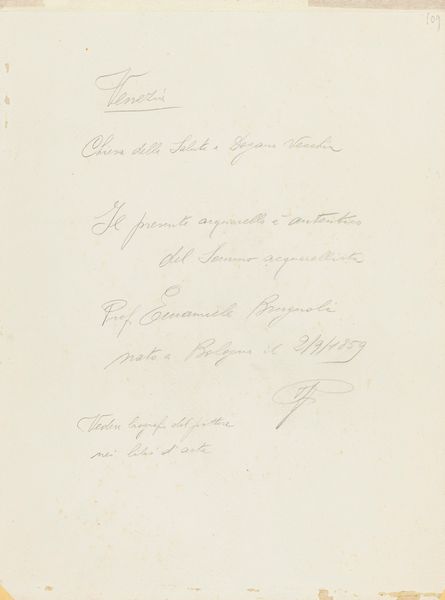 109
Venezia
Chiesa della Salute e Dogana Vecchia
Il presente acquarello è autentico
del Sommo acquerellista
Prof. Emanuele Brugnoli
nato a Bologna il 2/9/1859
Vedere biografi del pittore
nei libri d'arte